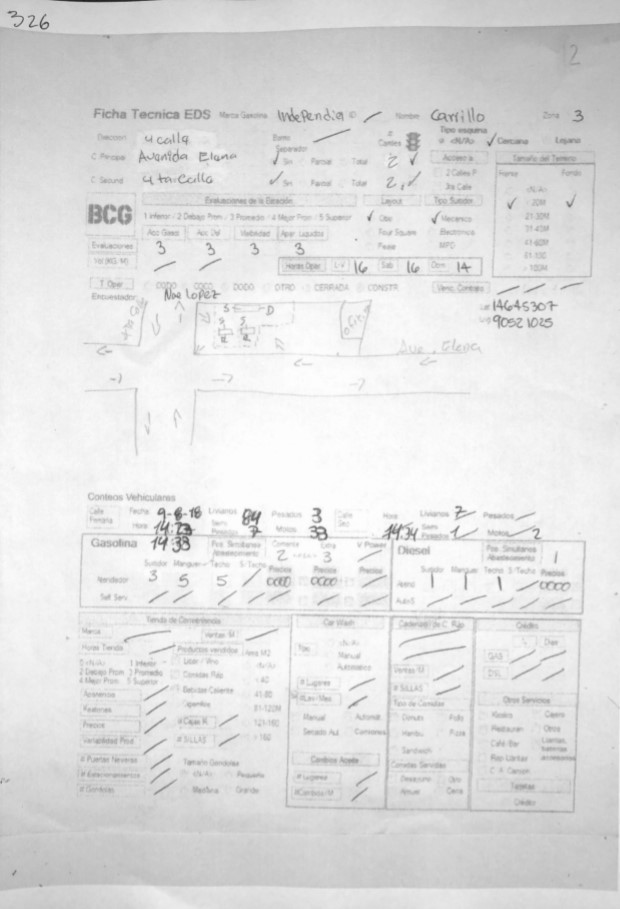 326
2
Ficha Tecnica EDS Marca Gasolina Independia ID / Nombre Carrillo Zona 3
Direccion 4 calla
C. Principal Avanida Elena
C. Secund 4ta. Calla
Separador
✓ Sin Parcial Total
✓ Sin Parcial Total
# Carriles
2 ✓
2
Tipo esquina
<N/A> ✓ Cercana Lejana
Acceso a
2 Calles P
3ra Calle
Tamaño del Terreno
Frente Fondo
<N/A>
✓ < 20M ✓
21-30M
31-40M
41-60M
61-100
> 100M
BCG
Evaluaciones de la Estación
1 Inferior - 2 Debajo Prom - 3 Promedio - 4 Mejor Prom - 5 Superior
Acc Gases Acc 2M Visibilidad Apar Liquidos
Evaluaciones 3 3 3 3
Vol (KG. M) / /
Layout
✓ Otro
Four Square
Tipo Surtidor
✓ Mecanico
Electronico
MPD
Horas Oper L-V 16 Sab 16 Dom 14
T. Oper DODO COCO DODO OTRO CERRADA CONSTR.
Venc. Contrato / / /
Encuestador Noe Lopez
14645307
90521025
Ave. Elena
Conteos Vehiculares
Calle Primaria Fecha 9-8-18 Livianos 84 Pesados 3
Hora 14:23 Semi Pesados 7 Motos 33
14:33
Calle Sec Hora 14:34 Livianos 7 Pesados /
Semi Pesados 1 Motos 2
Gasolina
Pos. Simultanea Abastecimiento
Corriente 2 Extra 3 V Power
Surtidor Manguer Techo S/Techo Precios Precios Precios
Atendedor 3 5 5 / 0000 0000 /
Self Serv. / / / / / / /
Diesel
Pos. Simultanea Abastecimiento 1
Surtidor Manguer Techo S/Techo Precios
Atend. 1 1 1 / 0000
AutoS / / / / /
Tienda de Conveniencia
Marca
Ventas /M
Horas Tienda
Productos vendidos
Area M2
0 <N/A> 1 Inferior
2 Debajo Prom 3 Promedio
4 Mejor Prom 5 Superior
Apariencia
Facilities
Precios
Variabilidad Prod.
# Puertas Neveras
# Estacionamientos
# Gondolas
Licor / Vino
Comidas Rap.
Bebidas Caliente
Cigarrillos
# Cajas R.
# SILLAS
Tamaño Gondolas
<N/A> Pequeña
Mediana Grande
<N/A>
< 40
41-80
81-120M
121-160
> 160
Car Wash
Tipo
<N/A>
Manual
# Lugares
#Lav-Mes
Manual Automat.
Secado Aut.
Cambios Aceite
# Lugares
#Cambios/M
Cadena(s) de C. Rap
Ventas /M
# SILLAS
Tipo de Comidas
Donuts Pollo
Hambu. Pizza
Sandwich
Comidas Servidas
Desayuno Otro
Almuer. Cena
Credito
L Dias
GAS
DSL
Otros Servicios
Kiosko Cajero
Restauran Otros
Café-Bar Llantas, baterias accesorios
Rep Llantas
Tarjetas
Crédito